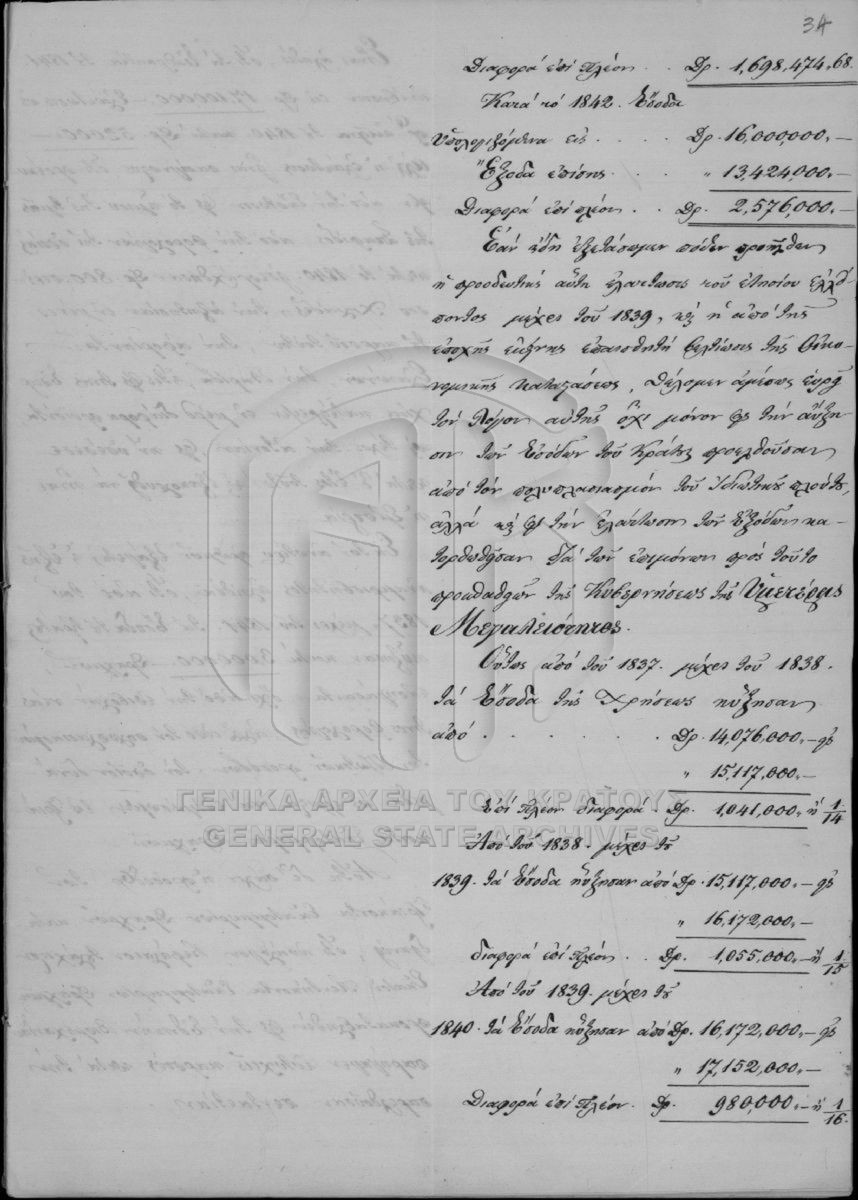 34
Διαφορά επί πλέον . . Δρ. 1,698,474,68.
Κατά τό 1842. Έσοδα
Υπολογιζόμενα εις . . . . Δρ. 16,000,000,—
Έξοδα επίσης . . . " 13,424,000,—
Διαφορά επί πλέον . . Δρ. 2,576,000,—
Εάν ήδη εξετάσωμεν πόθεν προήλθεν
η προοδευτική αύτη ελάττωσις του ετησίου ελλεί-
ποντος μέχρι του 1839, και η από της
εποχής εκείνης επαισθητή βελτίωσις της Οικο-
νομικής καταστάσεως, θέλομεν αμέσως ευρεί
τον λόγον αυτής όχι μόνον εις την αύξη-
σιν των Εσόδων του Κράτους προελθούσαν
από τον πολυπλασιασμόν του ιδιωτικού πλούτου,
αλλά και εις την ελάττωσιν των Εξόδων κα-
τορθωθείσαν διά των επιμόνων προς τούτο
προσπαθειών της Κυβερνήσεως της Υμετέρας
Μεγαλειότητος.
Ούτως από του 1837. μέχρι του 1838.
τά Έσοδα της Χρήσεως ηύξησαν
από . . . . . . Δρ. 14,076,000,— εις
" 15,117,000,—
Επί πλέον διαφορά . Δρ. 1,041,000,— ή 1/14
Από του 1838. μέχρι του
1839. τά Έσοδα ηύξησαν από Δρ. 15,117,000,— εις
" 16,172,000,—
διαφορά επί πλέον . . Δρ. 1,055,000,— ή 1/15
Από του 1839. μέχρι του
1840. τά Έσοδα ηύξησαν από Δρ. 16,172,000,— εις
" 17,152,000,—
Διαφορά επί πλέον. Δρ. 980,000,— ή 1/16.
ΓΕΝΙΚΑ ΑΡΧΕΙΑ ΤΟΥ ΚΡΑΤΟΥΣ
GENERAL STATE ARCHIVES